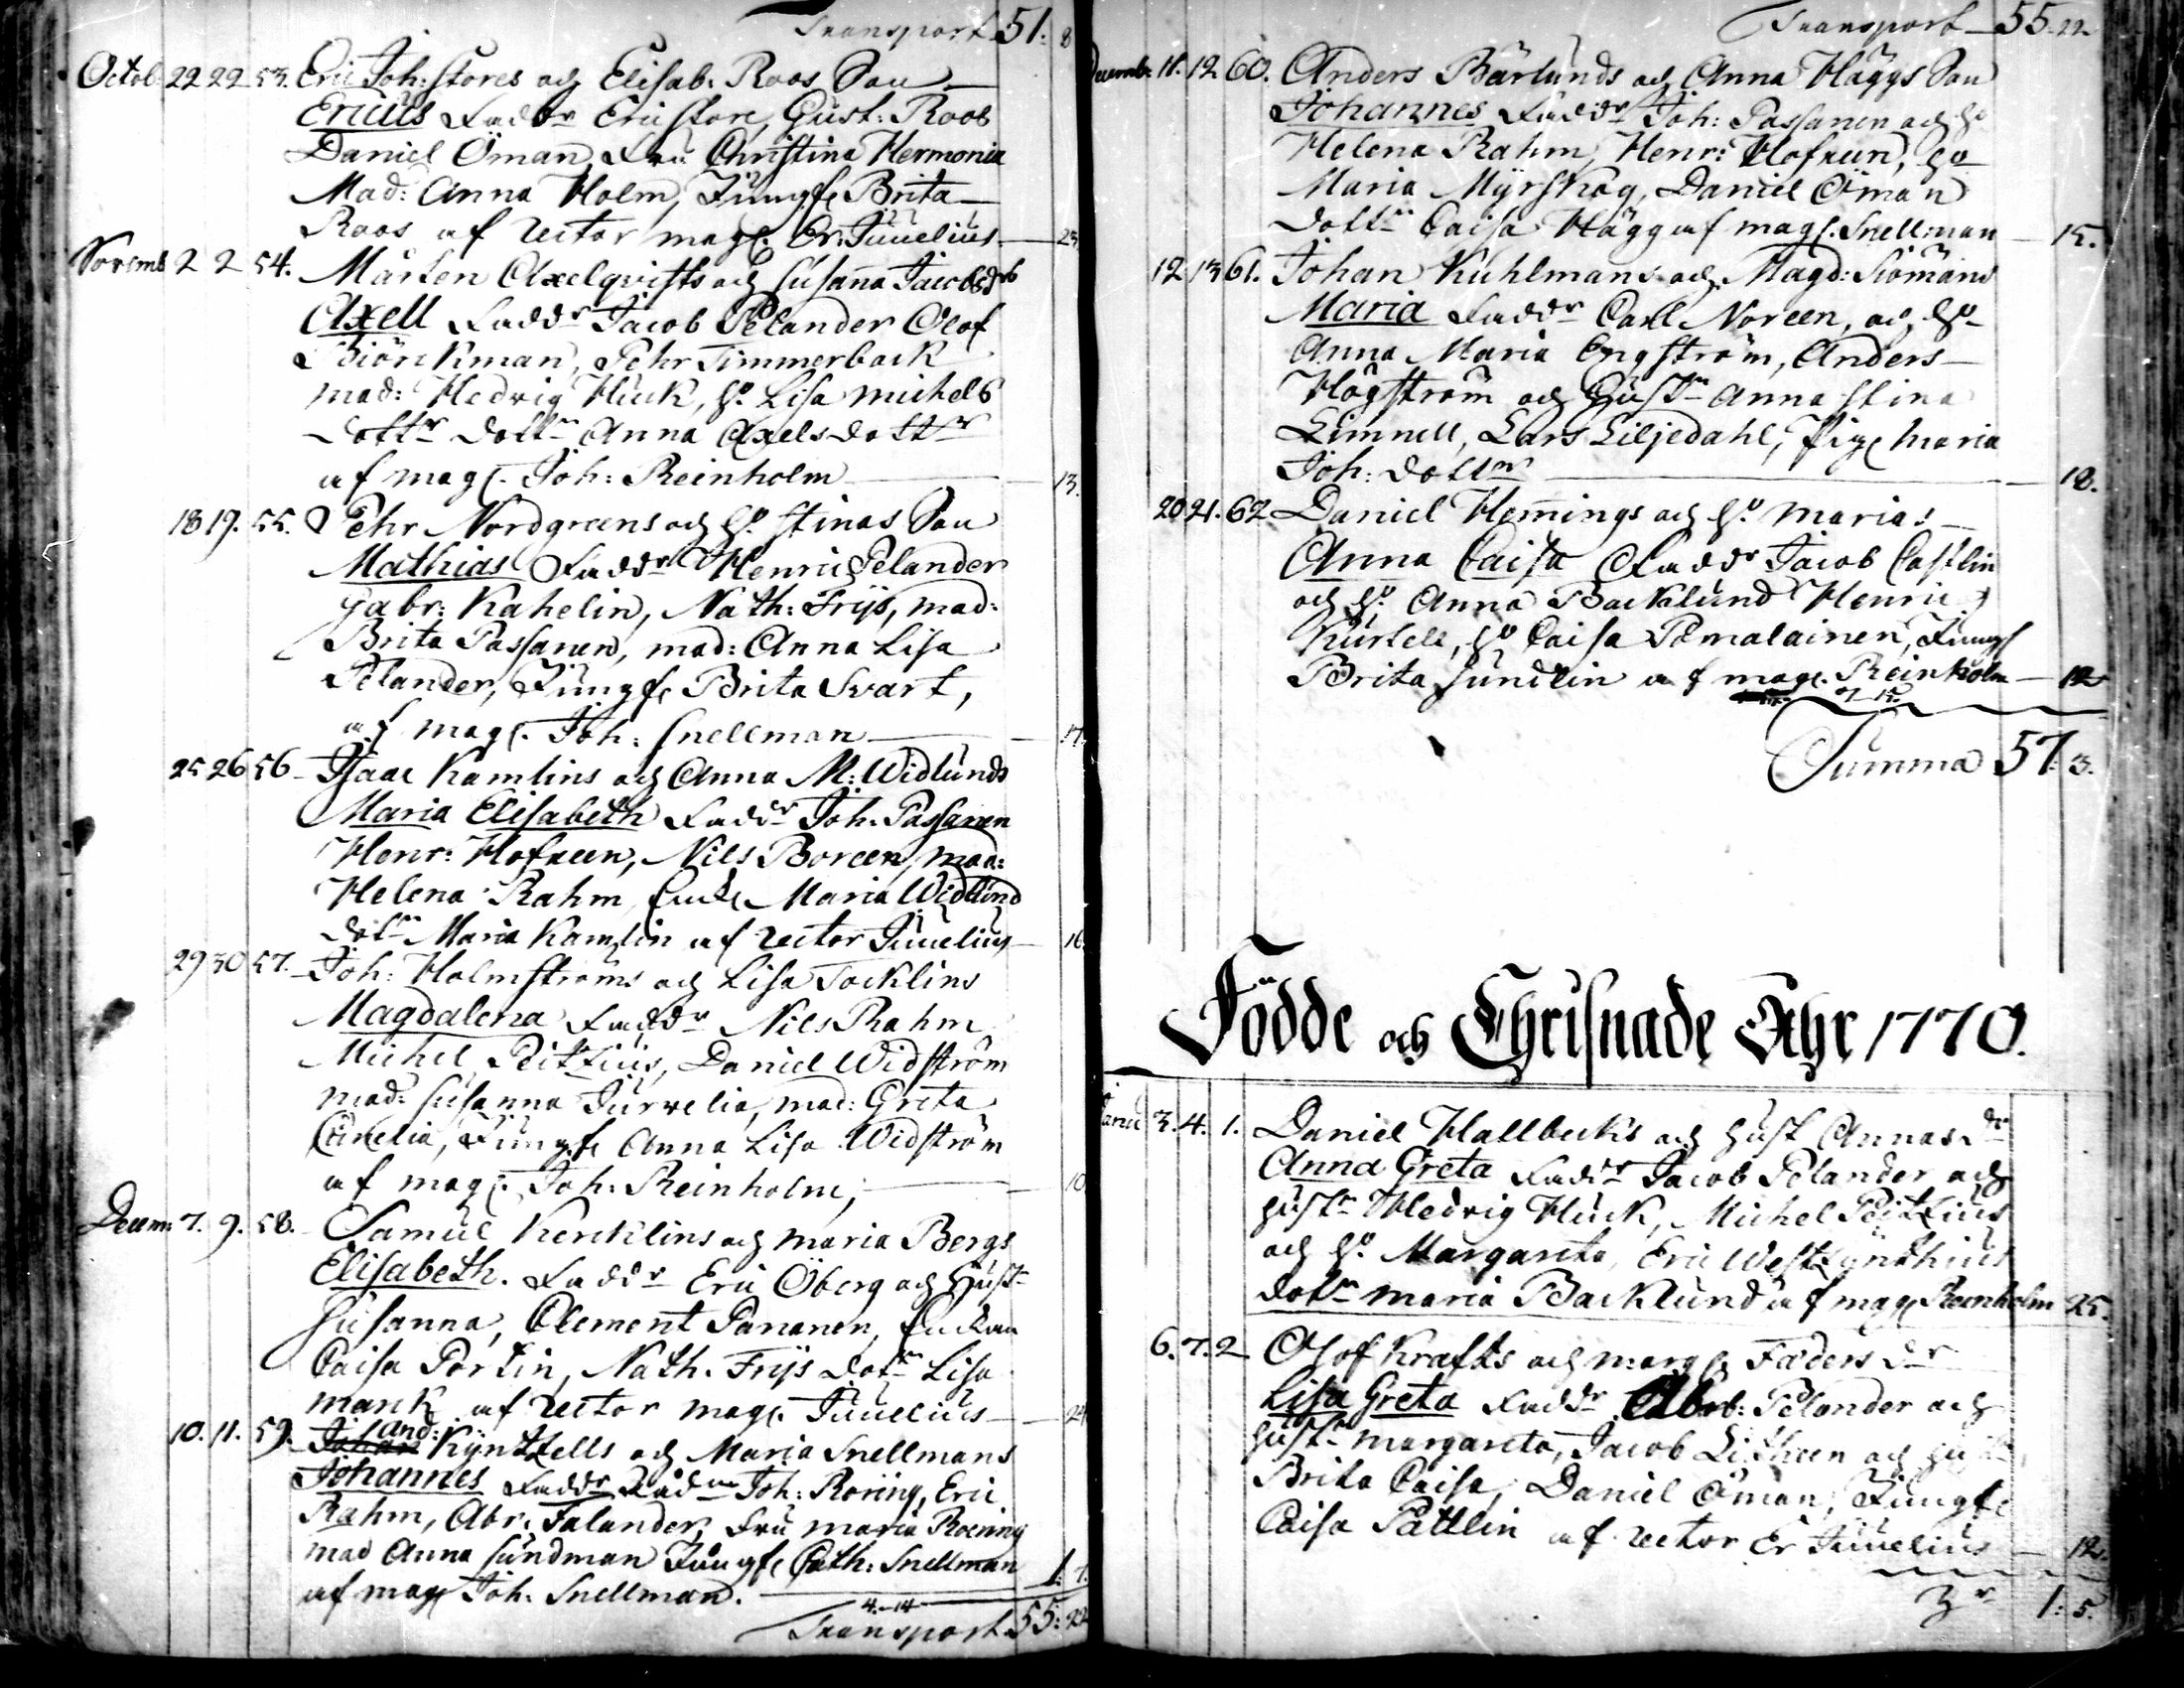 Transport 51: 8
Octob. 22 22 53. Eric Joh: Stores och Elisab: Roos Son
Ericus Faddr Eric Store, Gust: Roos
Daniel Öman, Fru Christina Hermonia
Mad: Anna Holm, Jungfr Brita
Roos af rector mag. Er: Juvelius 23
Novemb 2 2 54. Mårten Axelqvists och Susanna Jacobsdrs
Axell Faddr Jacob Pelander Olof
Biörckman, Pehr Timmerback
mad: Hedvig Huck, h. Lisa michels
dottr dottr Anna Axelsdottr
af mag. Joh: Reinholm 13.
18 19. 55. Pehr Nordgreens och h. Stinas Son
Mathias Faddr Henric Pelander
Gabr: Kahelin, Nath: Frijs, mad:
Brita Passanen, mad: Anna Lisa
Pelander, Jungfr Brita Svart,
af mag. Joh: Snellman 17.
25 26 56 Isaac Kamlins och Anna M: Widlunds
Maria Elisabeth Faddr Joh: Passanen
Henr: Hofreen, Nils Boreen, mad:
Helena Rahm, Maria Widlund
dotr Maria Kamlin af rector Juvelius 16.
29 30 57. Joh: Holmströms och Lisa Tocklins
Magdalena Faddr Nils Rahm
Michel Peitzius, Daniel Widström
mad: Susanna Jurvelia, mad: Greta
Jungfr Anna Lisa Widström
af mag. Joh: Reinholm, 10
Decem. 7. 9. 58. Samuel Kercklins och maria Bergs
Elisabeth. Faddr Eric Öberg och Hustr
Susanna, Clement Pananen, Enckan
Caisa Portin, Nath. Frijs dotr Lisa
mank af rector mag. Juvelius 24
10. 11. 59. And: Kyntzells och Maria Snellmans
Johannes Faddr Rådm Joh: Roring, Eric
Rahm, Abr: Falander, Fru maria Roering
mad Anna Sundman Jungfr Cath: Snellman
af mag Joh: Snellman. 1: 7.
4.-14
Transport 55: 22
Transport 55: 22
Decemb: 11. 12 60. Anders Bärlunds och Anna Häggs Son
Johannes Faddr Joh: Passanen och h
Helena Rahm, Henr: Hofreen, h
Maria Myrskog, Daniel Öman
dottr Caisa Hägg af mag. Snellman 15.
12 13 61. Johan Kuhlmans och Magd: Siömans
Maria Faddr Carl Noreen, och h
Anna Maria Engström, Anders
Högström och Hustr Anna Stina
Limnell, Lars Liljedahl, Pig. Maria
Joh: dottr 18.
20 21. 62 Daniel Hemings och h. marias
Anna Caisa Faddr Jacob Castlin
och h. Anna Backlund Henric
h Caisa Pomalainen, Jungf
Brita Sundlin af mag. Reinholm 12
Summa 57: 3.
Födde och Christnade Åhr 1770.
Januar 3. 4. 1. Daniel Hallbecks och Hust Annas dr
Anna Greta Faddr Jacob Pelander och
Hustr Hedvig Huck, Michel Peitzius
och h. Margareta, Eric Westzynthius
dotr maria Backlund af mag Reinholm 25.
6. 7. 2 Olof Krafts och marg. Fæders dr
Lisa Greta Faddr Abrb: Pelander och
Hustr margareta, Jacob Litheen och hustr,
Brita Caisa, Daniel Öman, Jungfr
Caisa Pattlin af rector Er Juvelius 12.
1: 5.